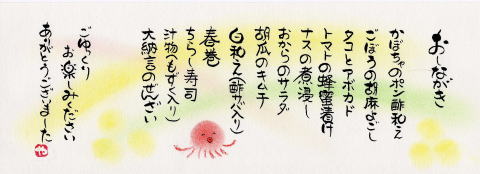 おしながき
かぼちゃのポン酢和え
ごぼうの胡麻よごし
タコとアボカド
トマトの蜂蜜漬け
ナスの煮浸し
おからのサラダ
胡瓜のキムチ
白和え(酢べ入り)
春巻
ちらし寿司
汁物(もずく入り)
大納言のぜんざい
ごゆっくり
お楽しみください
ありがとうございました